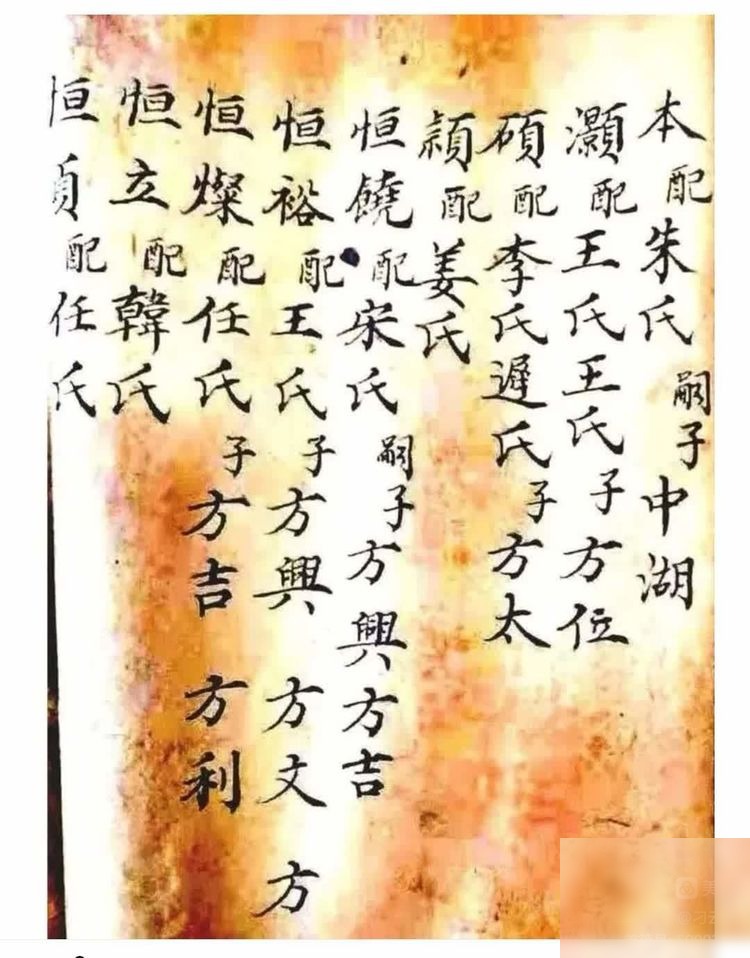 本配朱氏嗣子中湖
灝配王氏王氏子方位
碩配李氏遲氏子方太
頴配姜氏
恒饒配宋氏嗣子方興方吉
恒裕配王氏子方興方文方
恒燦配任氏子方吉方利
恒立配韓氏
恒貞配任氏